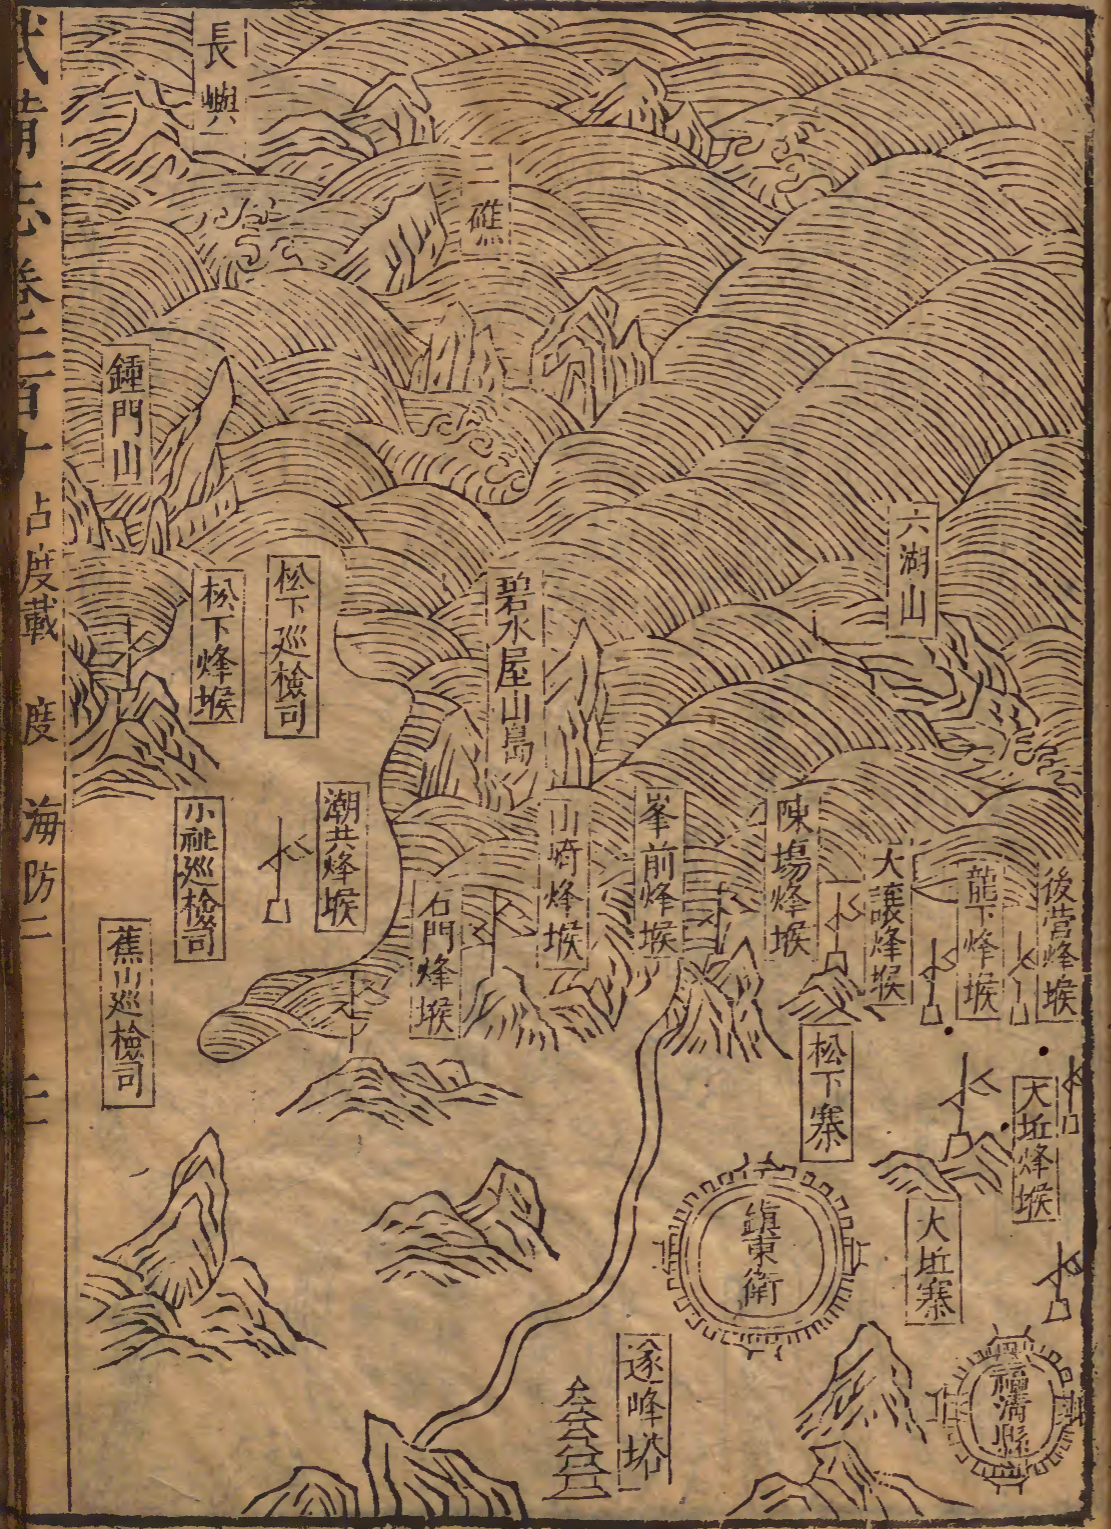 武備志卷二百十 占度載 度 海防二
長嶼
三礁
鍾門山
六湖山
松下烽堠
松下巡檢司
碧水屋山島
小祉巡檢司
潮共烽堠
石門烽堠
山崎烽堠
峯前烽堠
陳塲烽堠
大讓烽堠
龍下烽堠
後營烽堠
蕉山巡檢司
松下寨
大坵烽堠
鎮東衛
大坵寨
遂峰塔
福清縣